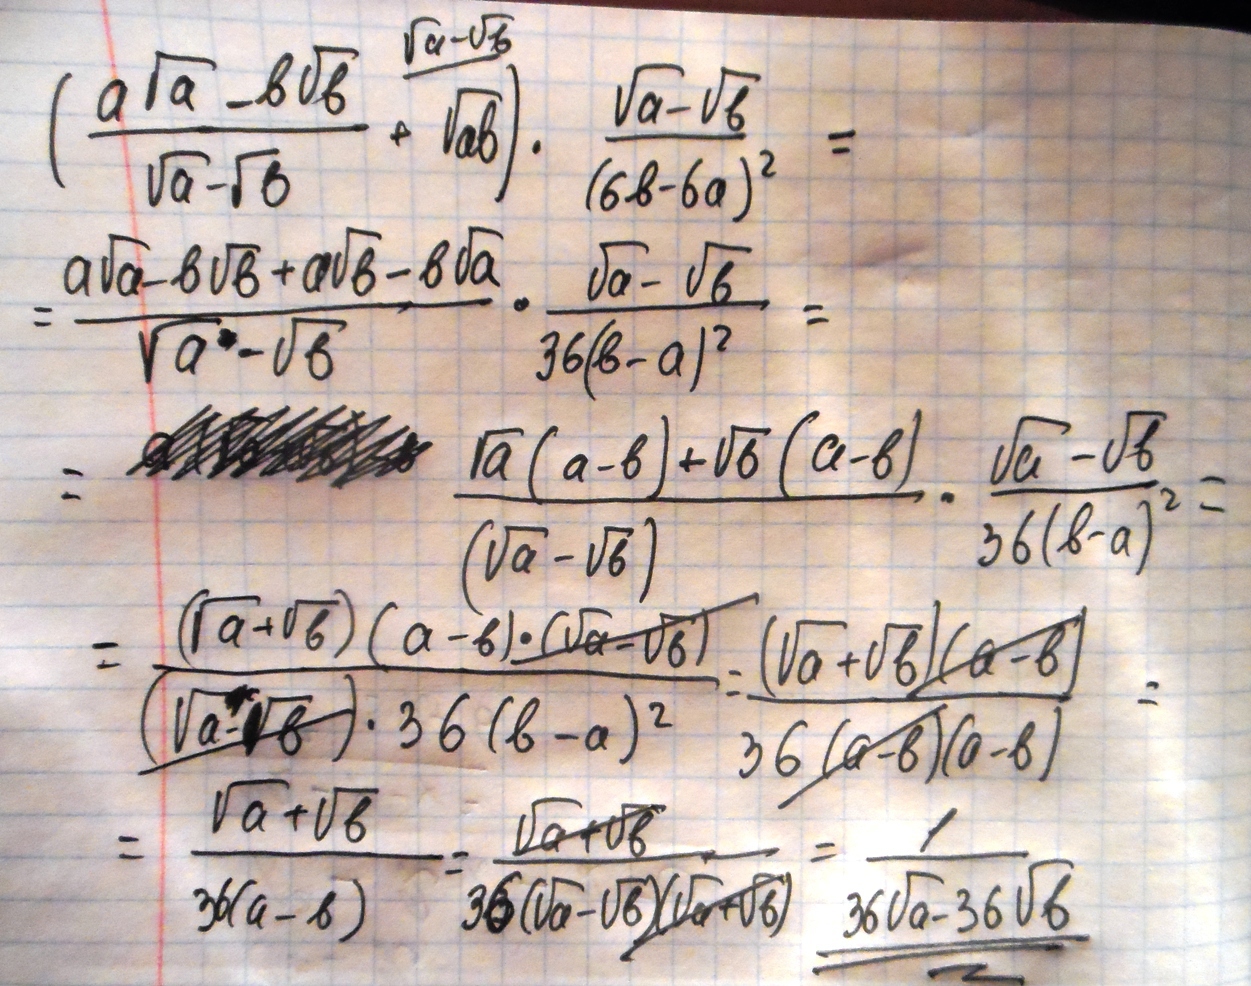 √a-√b
(a√a - b√b / √a-√b + √ab) · √a-√b / (6b-6a)² =
= a√a-b√b+a√b-b√a / √a-√b · √a-√b / 36(b-a)² =
= √a(a-b)+√b(a-b) / (√a-√b) · √a-√b / 36(b-a)² =
= (√a+√b)(a-b)·(√a-√b) / (√a-√b)·36(b-a)² = (√a+√b)(a-b) / 36(a-b)(a-b) =
= √a+√b / 36(a-b) = √a+√b / 36(√a-√b)(√a+√b) = 1 / 36√a-36√b